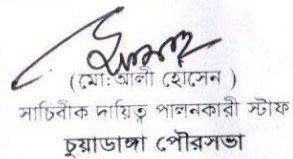 (মো:আলী হোসেন)
সাচিবীক দায়িত্ব পালনকারী স্টাফ
চুয়াডাঙ্গা পৌরসভা